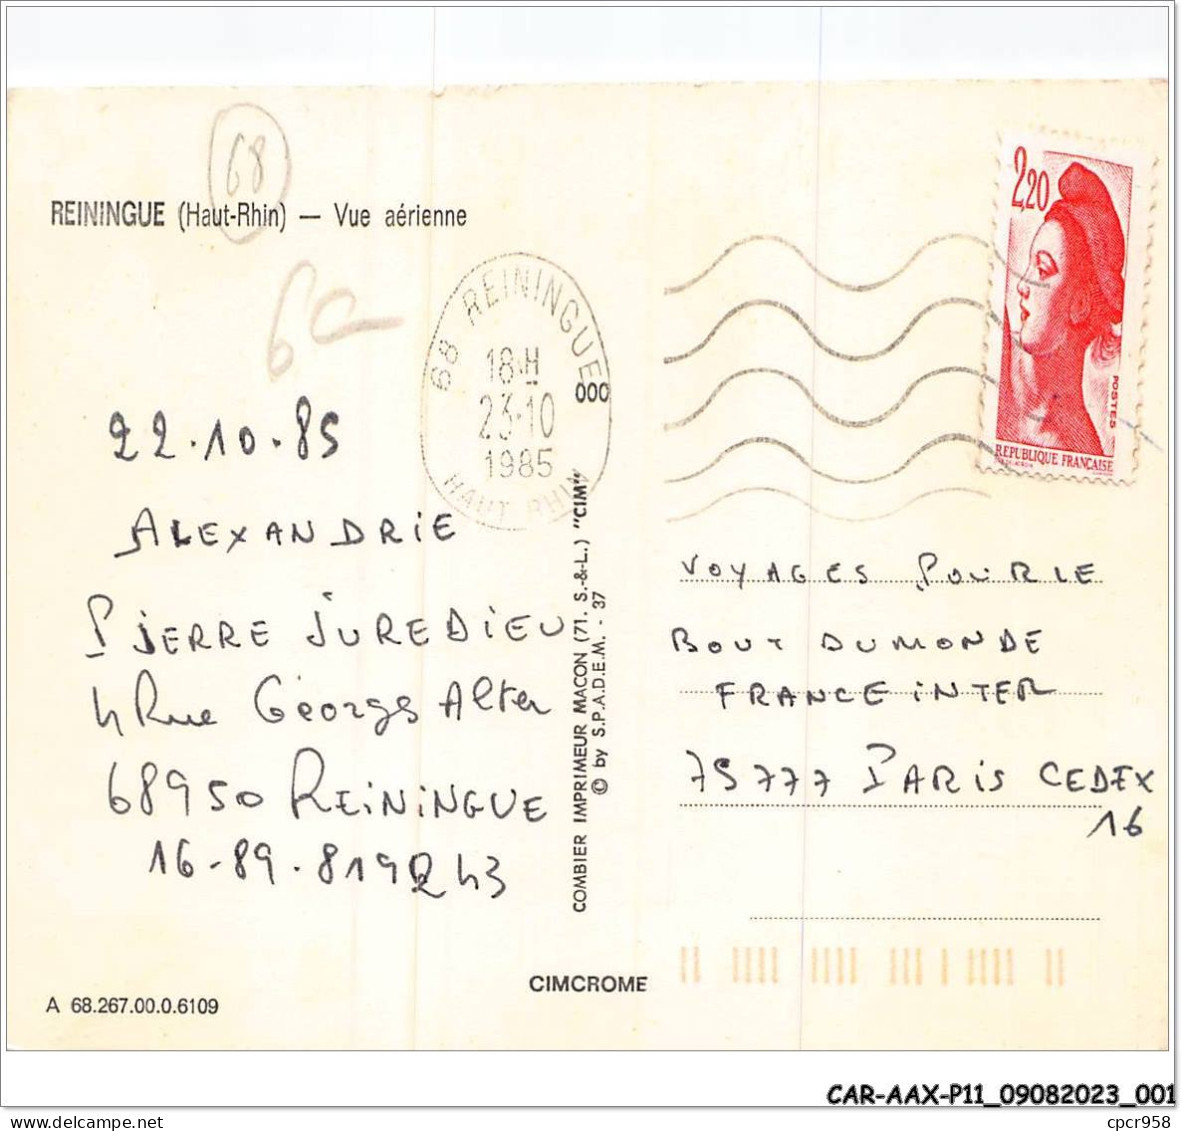 68
REININGUE (Haut-Rhin) — Vue aérienne
68 REININGUE
18H
23·10
1985
HAUT RHIN
000
2,20
POSTES
REPUBLIQUE FRANCAISE
22.10.85
ALEXANDRIE
PIERRE JUREDIEU
4 Rue Georges Alter
68950 REININGUE
16-89.819243
COMBIER IMPRIMEUR MACON (71. S.-&-L.) "CIM"
© by S.P.A.D.E.M. - 37
VOYAGES POUR LE
BOUT DU MONDE
FRANCE INTER
75777 PARIS CEDEX
16
CIMCROME
A 68.267.00.0.6109
CAR-AAX-P11_09082023_001
cpcr958